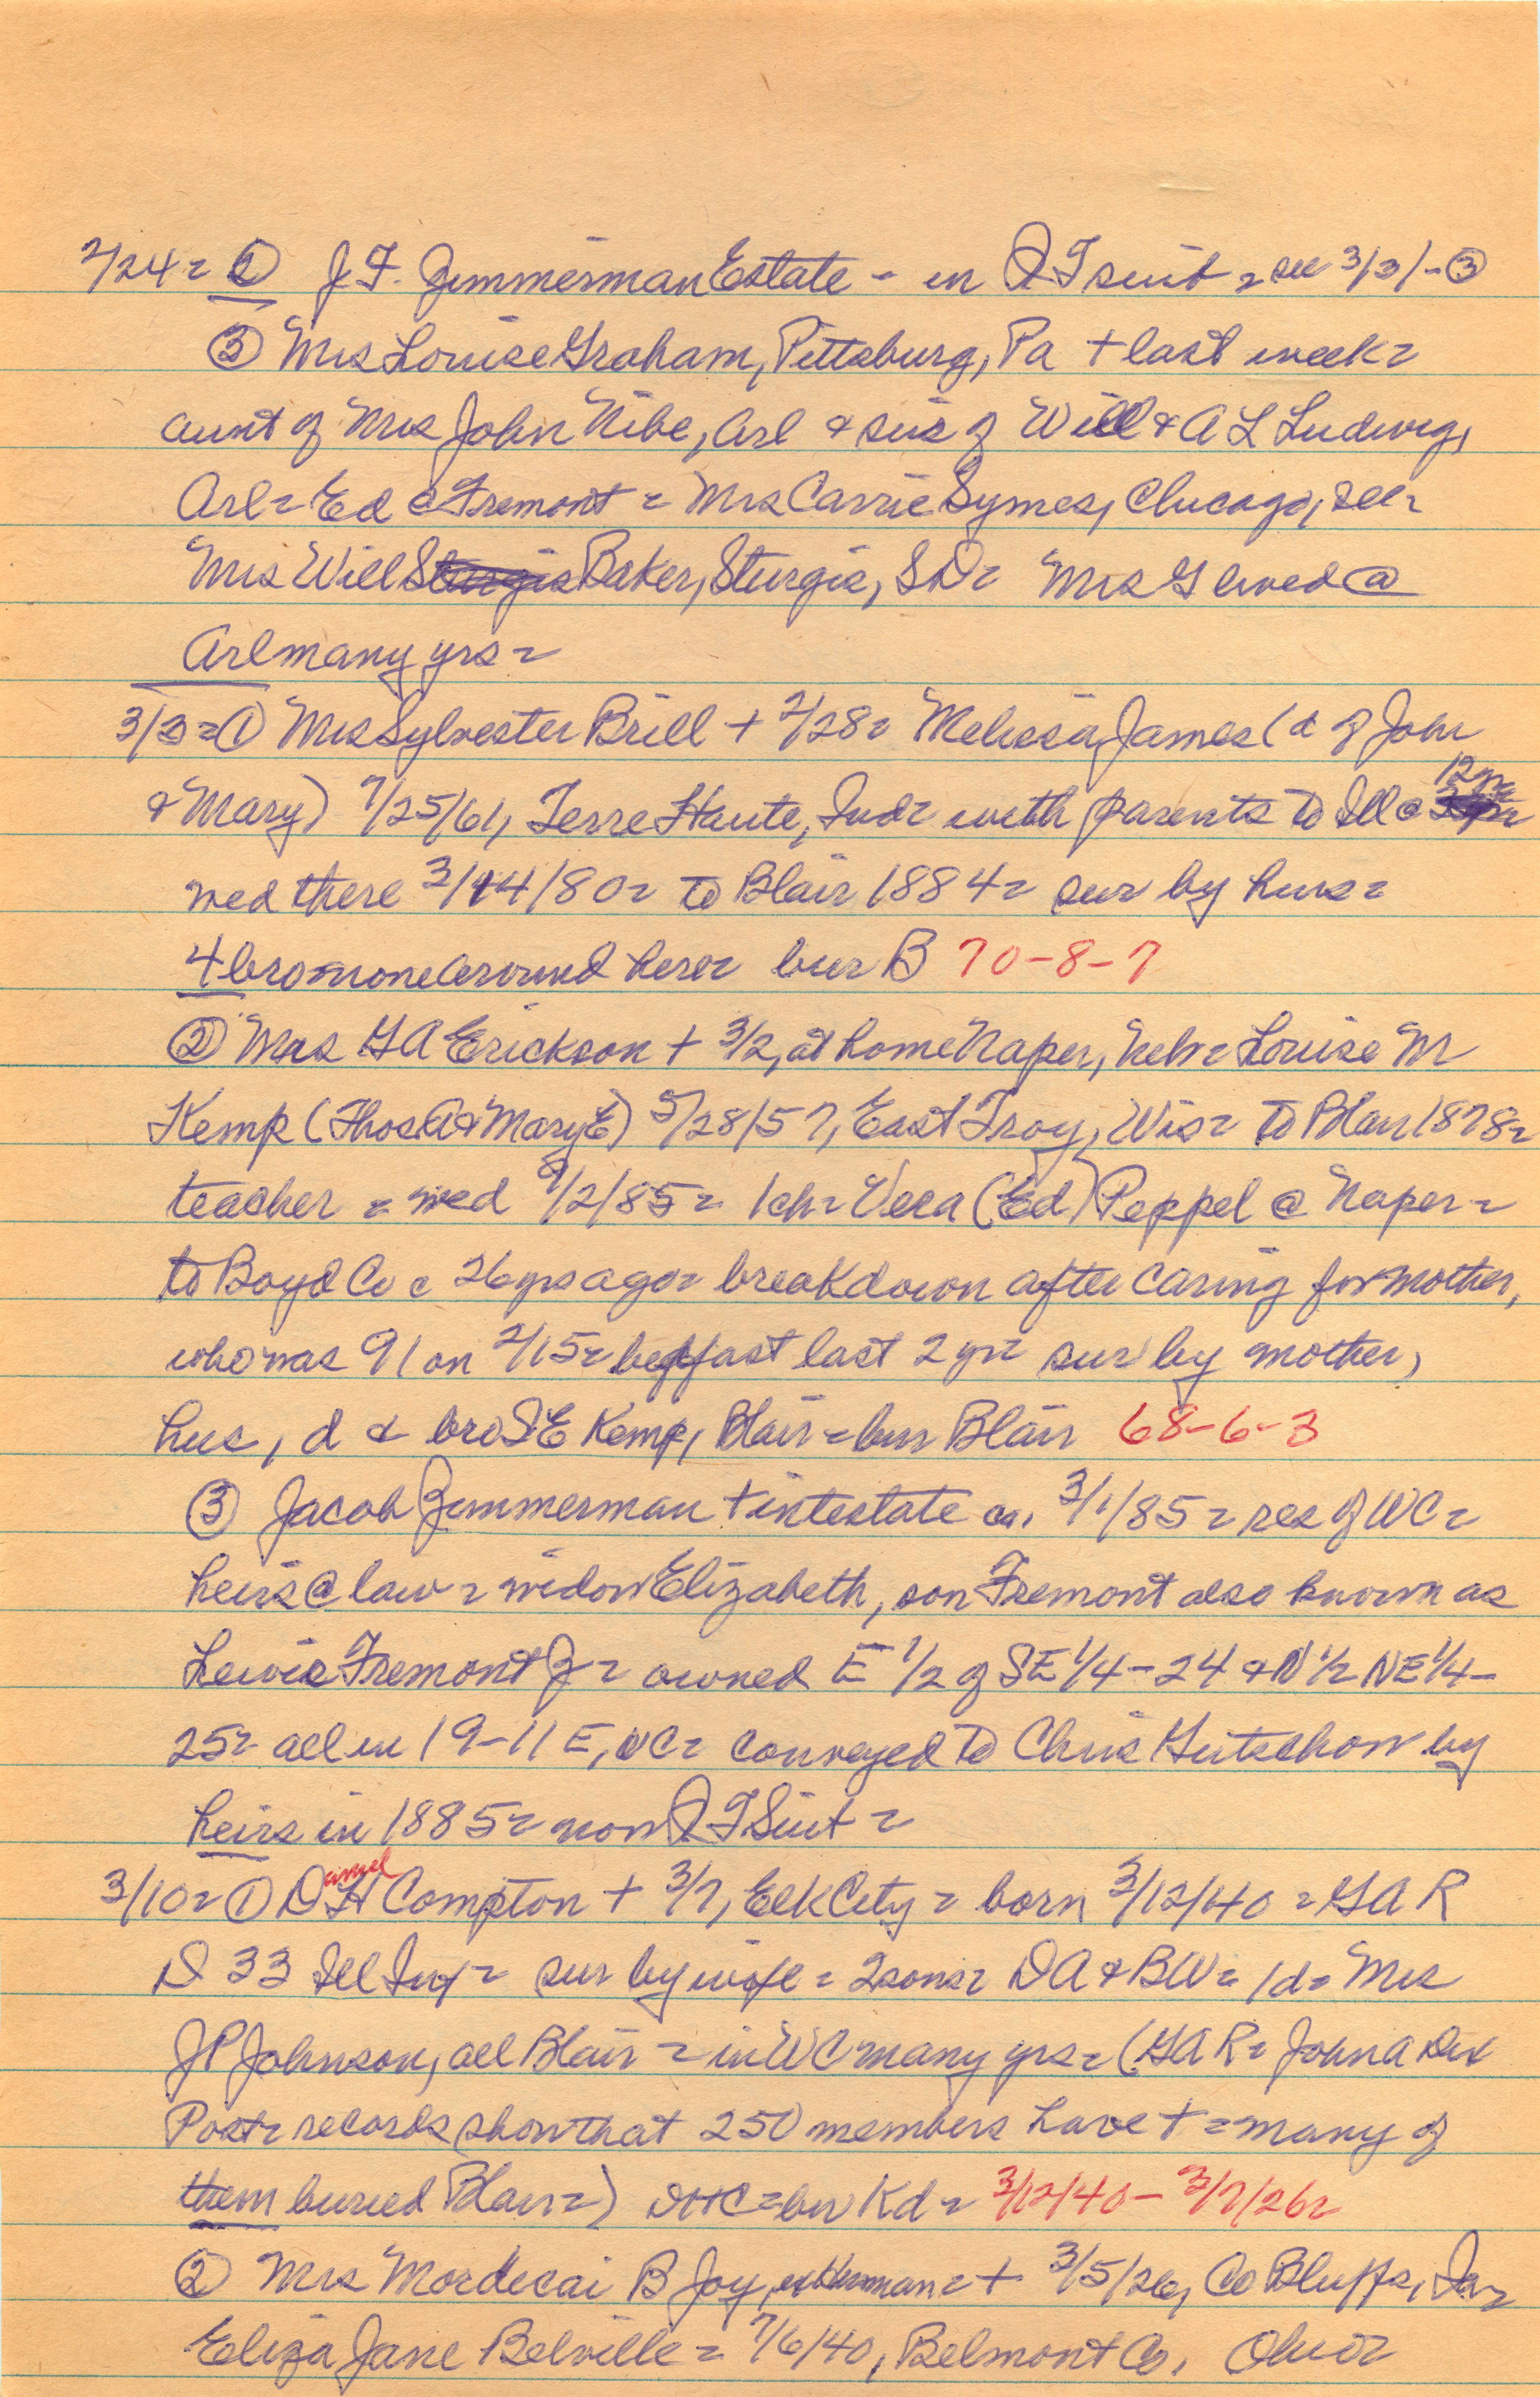 2/24= ② J F. Zimmerman Estate - in QT suit = see 3/3/-③
③ Mrs Louise Graham, Pittsburg, Pa + last week=
aunt of Mrs John Nibe, Arl & sis of Will & A L Ludwig,
Arl= Ed @ Fremont = Mrs Carrie Symes, Chicago, Ill=
Mrs Will Sturgis Baker, Sturgis, SD= Mrs G lived @
Arl many yrs=
3/3=① Mrs Sylvester Brill + 2/28= Melissa James (d of John
& Mary) 7/25/61, Terre Haute, Ind= with parents to Ill @ 12yrs
wed there 3/14/80= to Blair 1884= sur by hus=
4 bro= none around here= bur B 70-8-7
② Mrs GA Erickson + 3/2, at home Naper, Neb= Louise M
Kemp (Thos A & Mary E) 5/28/57, East Troy, Wis= to Blair 1878=
teacher = wed 9/2/85= 1ch= Vera (Ed) Peppel @ Naper=
to Boyd Co c 26yrs ago= breakdown after caring for mother,
who was 91 on 2/15= bedfast last 2 yr= sur by mother,
hus, d & bro SE Kemp, Blair = bur Blair 68-6-3
③ Jacob Zimmerman + intestate ca. 3/1/85= res of WC=
heirs @ law = widow Elizabeth, son Fremont also known as
Lewis Fremont Z= owned E 1/2 of SE 1/4-24 & N 1/2 NE 1/4-
25= all in 19-11 E, WC= conveyed to Chris Gutschow by
heirs in 1885= now QT Suit=
3/10=① Daniel H Compton + 3/7, Elk City= born 3/12/40 = GAR
D 33 Ill Inf= sur by wife = 2sons= DA & BW= 1d= Mrs
JP Johnson, all Blair = in WC many yrs= (GAR= John A Dix
Post= records show that 250 members have + = many of
them buried Blair=) DHC= bur Kd= 3/12/40- 3/7/26=
② Mrs Mordecai B Joy, ex Herman= + 3/5/26, Co Bluffs, Ia=
Eliza Jane Belville= 7/6/40, Belmont Co, Ohio=